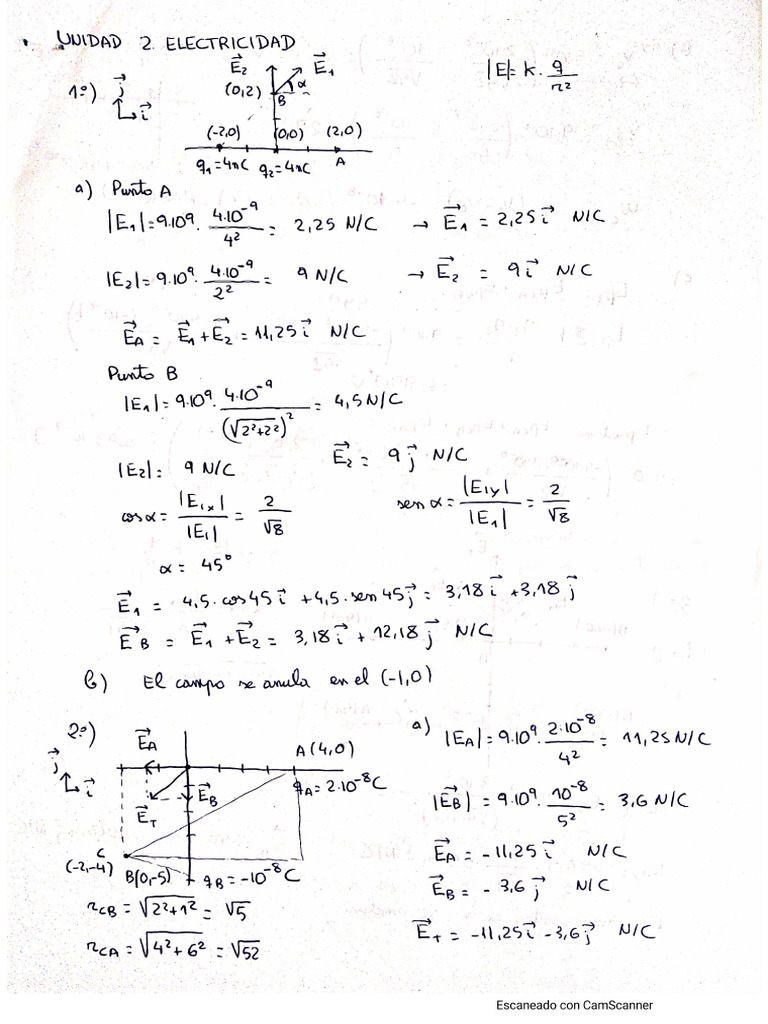 UNIDAD 2. ELECTRICIDAD
|E|= k · q/r²
1º) j⃗
i⃗
E⃗₂ E⃗₁
(0,2) α
B
(-2,0) (0,0) (2,0)
q₁=4nC q₂=4nC A
a) Punto A
|E₁|=9·10⁹· 4·10⁻⁹/4² = 2,25 N/C → E⃗₁ = 2,25 i⃗ N/C
|E₂|=9·10⁹· 4·10⁻⁹/2² = 9 N/C → E⃗₂ = 9 i⃗ N/C
E⃗A = E⃗₁+E⃗₂ = 11,25 i⃗ N/C
Punto B
|E₁|=9·10⁹· 4·10⁻⁹/(√2²+2²)² = 4,5 N/C
|E₂|= 9 N/C E⃗₂ = 9 j⃗ N/C
cosα = |E₁ₓ|/|E₁| = 2/√8 sen α = |E₁y|/|E₁| = 2/√8
α = 45°
E⃗₁ = 4,5·cos45 i⃗ + 4,5·sen45 j⃗ = 3,18 i⃗ + 3,18 j⃗
E⃗B = E⃗₁ + E⃗₂ = 3,18 i⃗ + 12,18 j⃗ N/C
b) El campo se anula en el (-1,0)
2º) j⃗
i⃗
E⃗A A(4,0)
qA = 2·10⁻⁸C
E⃗B
E⃗T
C
(-2,-4) B(0,-5) qB = -10⁻⁸C
rCB = √2²+1² = √5
rCA = √4²+6² = √52
a) |EA|=9·10⁹· 2·10⁻⁸/4² = 11,25 N/C
|E⃗B| = 9·10⁹· 10⁻⁸/5² = 3,6 N/C
E⃗A = -11,25 i⃗ N/C
E⃗B = -3,6 j⃗ N/C
E⃗T = -11,25 i⃗ - 3,6 j⃗ N/C
Escaneado con CamScanner